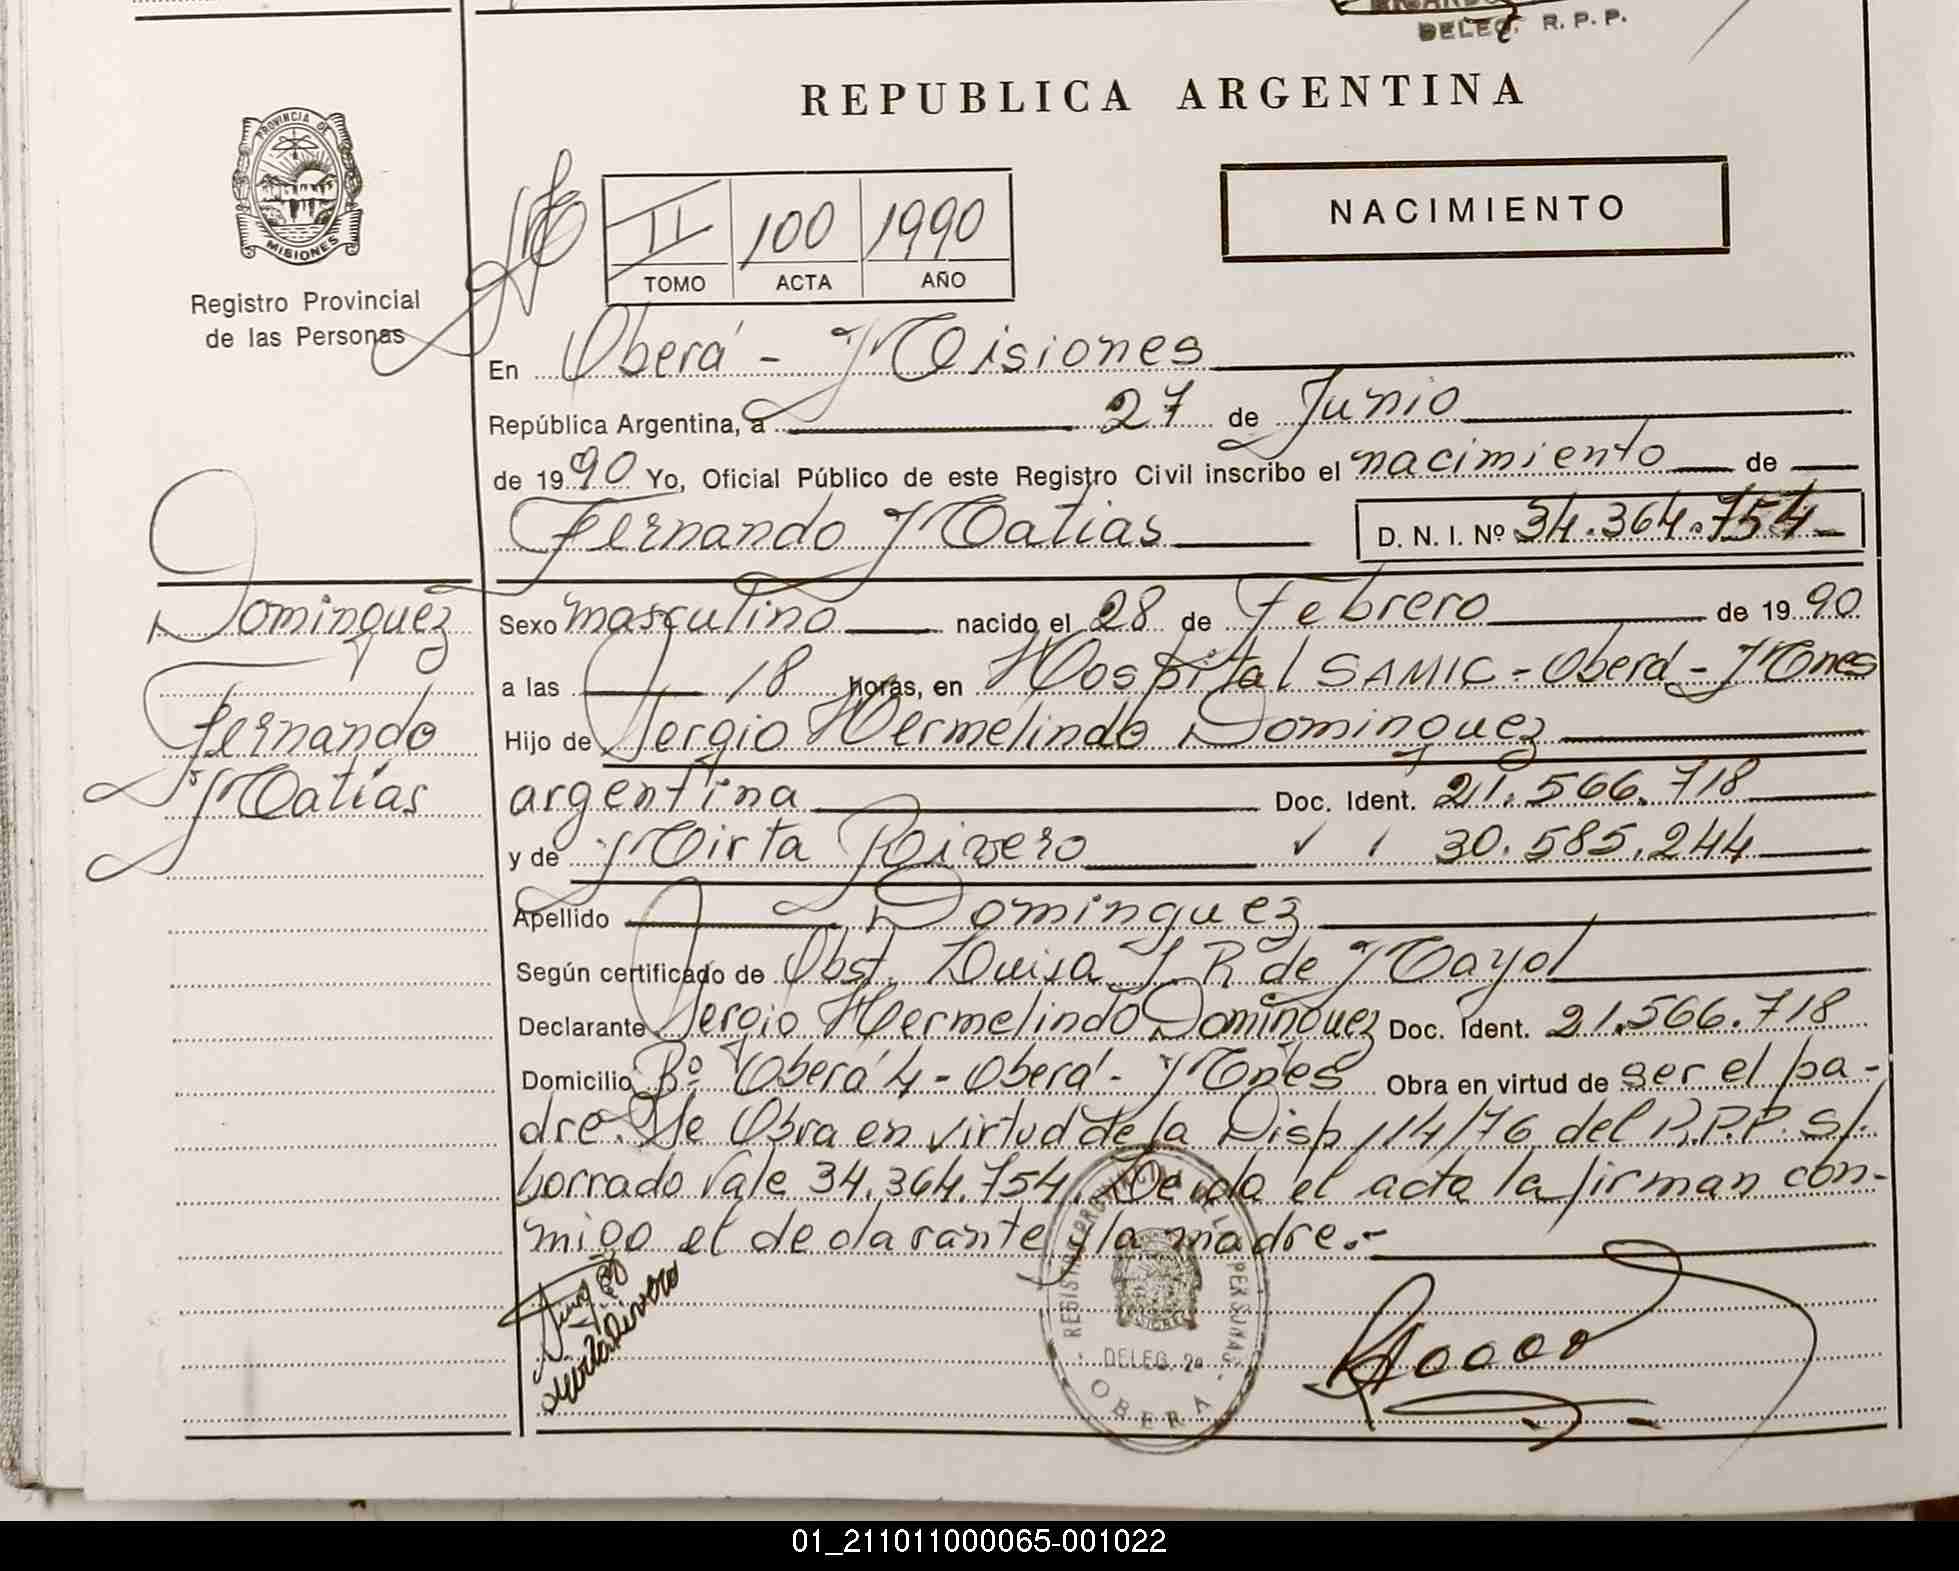 DELEG. R. P. P.
REPUBLICA ARGENTINA
PROVINCIA DE
MISIONES
Registro Provincial
de las Personas
II 100 1990
TOMO ACTA AÑO
NACIMIENTO
En Oberá - Misiones
República Argentina, a 27 de Junio
de 1990 Yo, Oficial Público de este Registro Civil inscribo el nacimiento de
Fernando Matias D. N. I. Nº 34.364.754
Dominguez
Fernando
Matías
Sexo masculino nacido el 28 de Febrero de 1990
a las 18 horas, en Hospital SAMIC - Oberá - Mnes
Hijo de Sergio Hermelindo Dominguez
argentina Doc. Ident. 21.566.718
y de Mirta Rivero 30.585.244
Apellido Dominguez
Según certificado de Obst. Luisa J. R de Mayol
Declarante Sergio Hermelindo Dominguez Doc. Ident. 21.566.718
Domicilio Bº Oberá 4 - Oberá - Mnes Obra en virtud de ser el pa-
dre. Se Obra en virtud de la Disp 114/76 del R.P.P. s/.
borrado vale 34.364.754. Leida el acta la firman con-
migo el declarante y la madre.-
Mirta Rivero
REGISTRO PROVINCIAL DE LAS PERSONAS
DELEG. 2a
OBERA
01_211011000065-001022